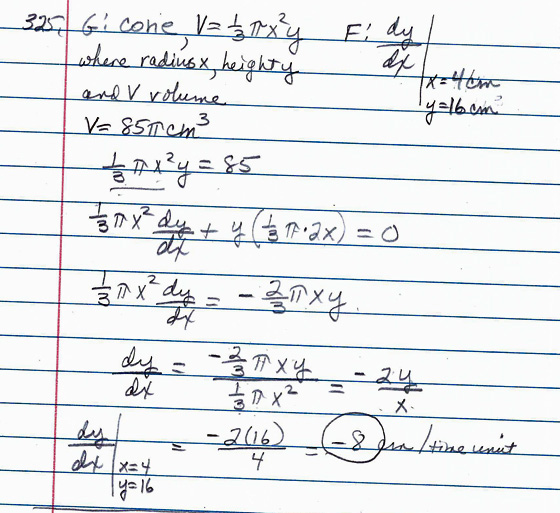 325. G: cone, V = 1/3 πx²y F: dy/dx | x=4cm y=16cm
where radius x, height y
and V volume
V = 85π cm³
1/3 πx²y = 85
1/3 πx² dy/dx + y(1/3 π·2x) = 0
1/3 πx² dy/dx = - 2/3 πxy
dy/dx = (-2/3 πxy)/(1/3 πx²) = - 2y/x
dy/dx | x=4 y=16 = -2(16)/4 = -8 cm/time unit